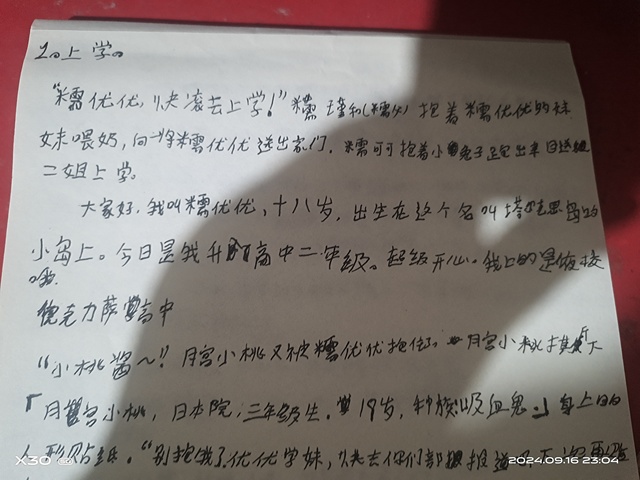 2。上学。
"糯优优,快滚去上学!"糯 抱着糯优优的妹
妹喂奶,向将糯优优送出家门。糯可可抱着小兔子走出来目送
二姐上学。
大家好,我叫糯优优,十八岁,出生在这个名叫塔 思岛的
小岛上。今日是我升高中二年级。超级开心。我上的是
哦
德克力萨 高中
"小桃酱~!"月宫小桃又被糯优优抱住了,月宫小桃
「月宫小桃,日本院,三年级生。19岁,种族吸血鬼」身上的
人形贴纸。"别抱我了优优学妹,快去你们部 报
X30
2024.09.16 23:04